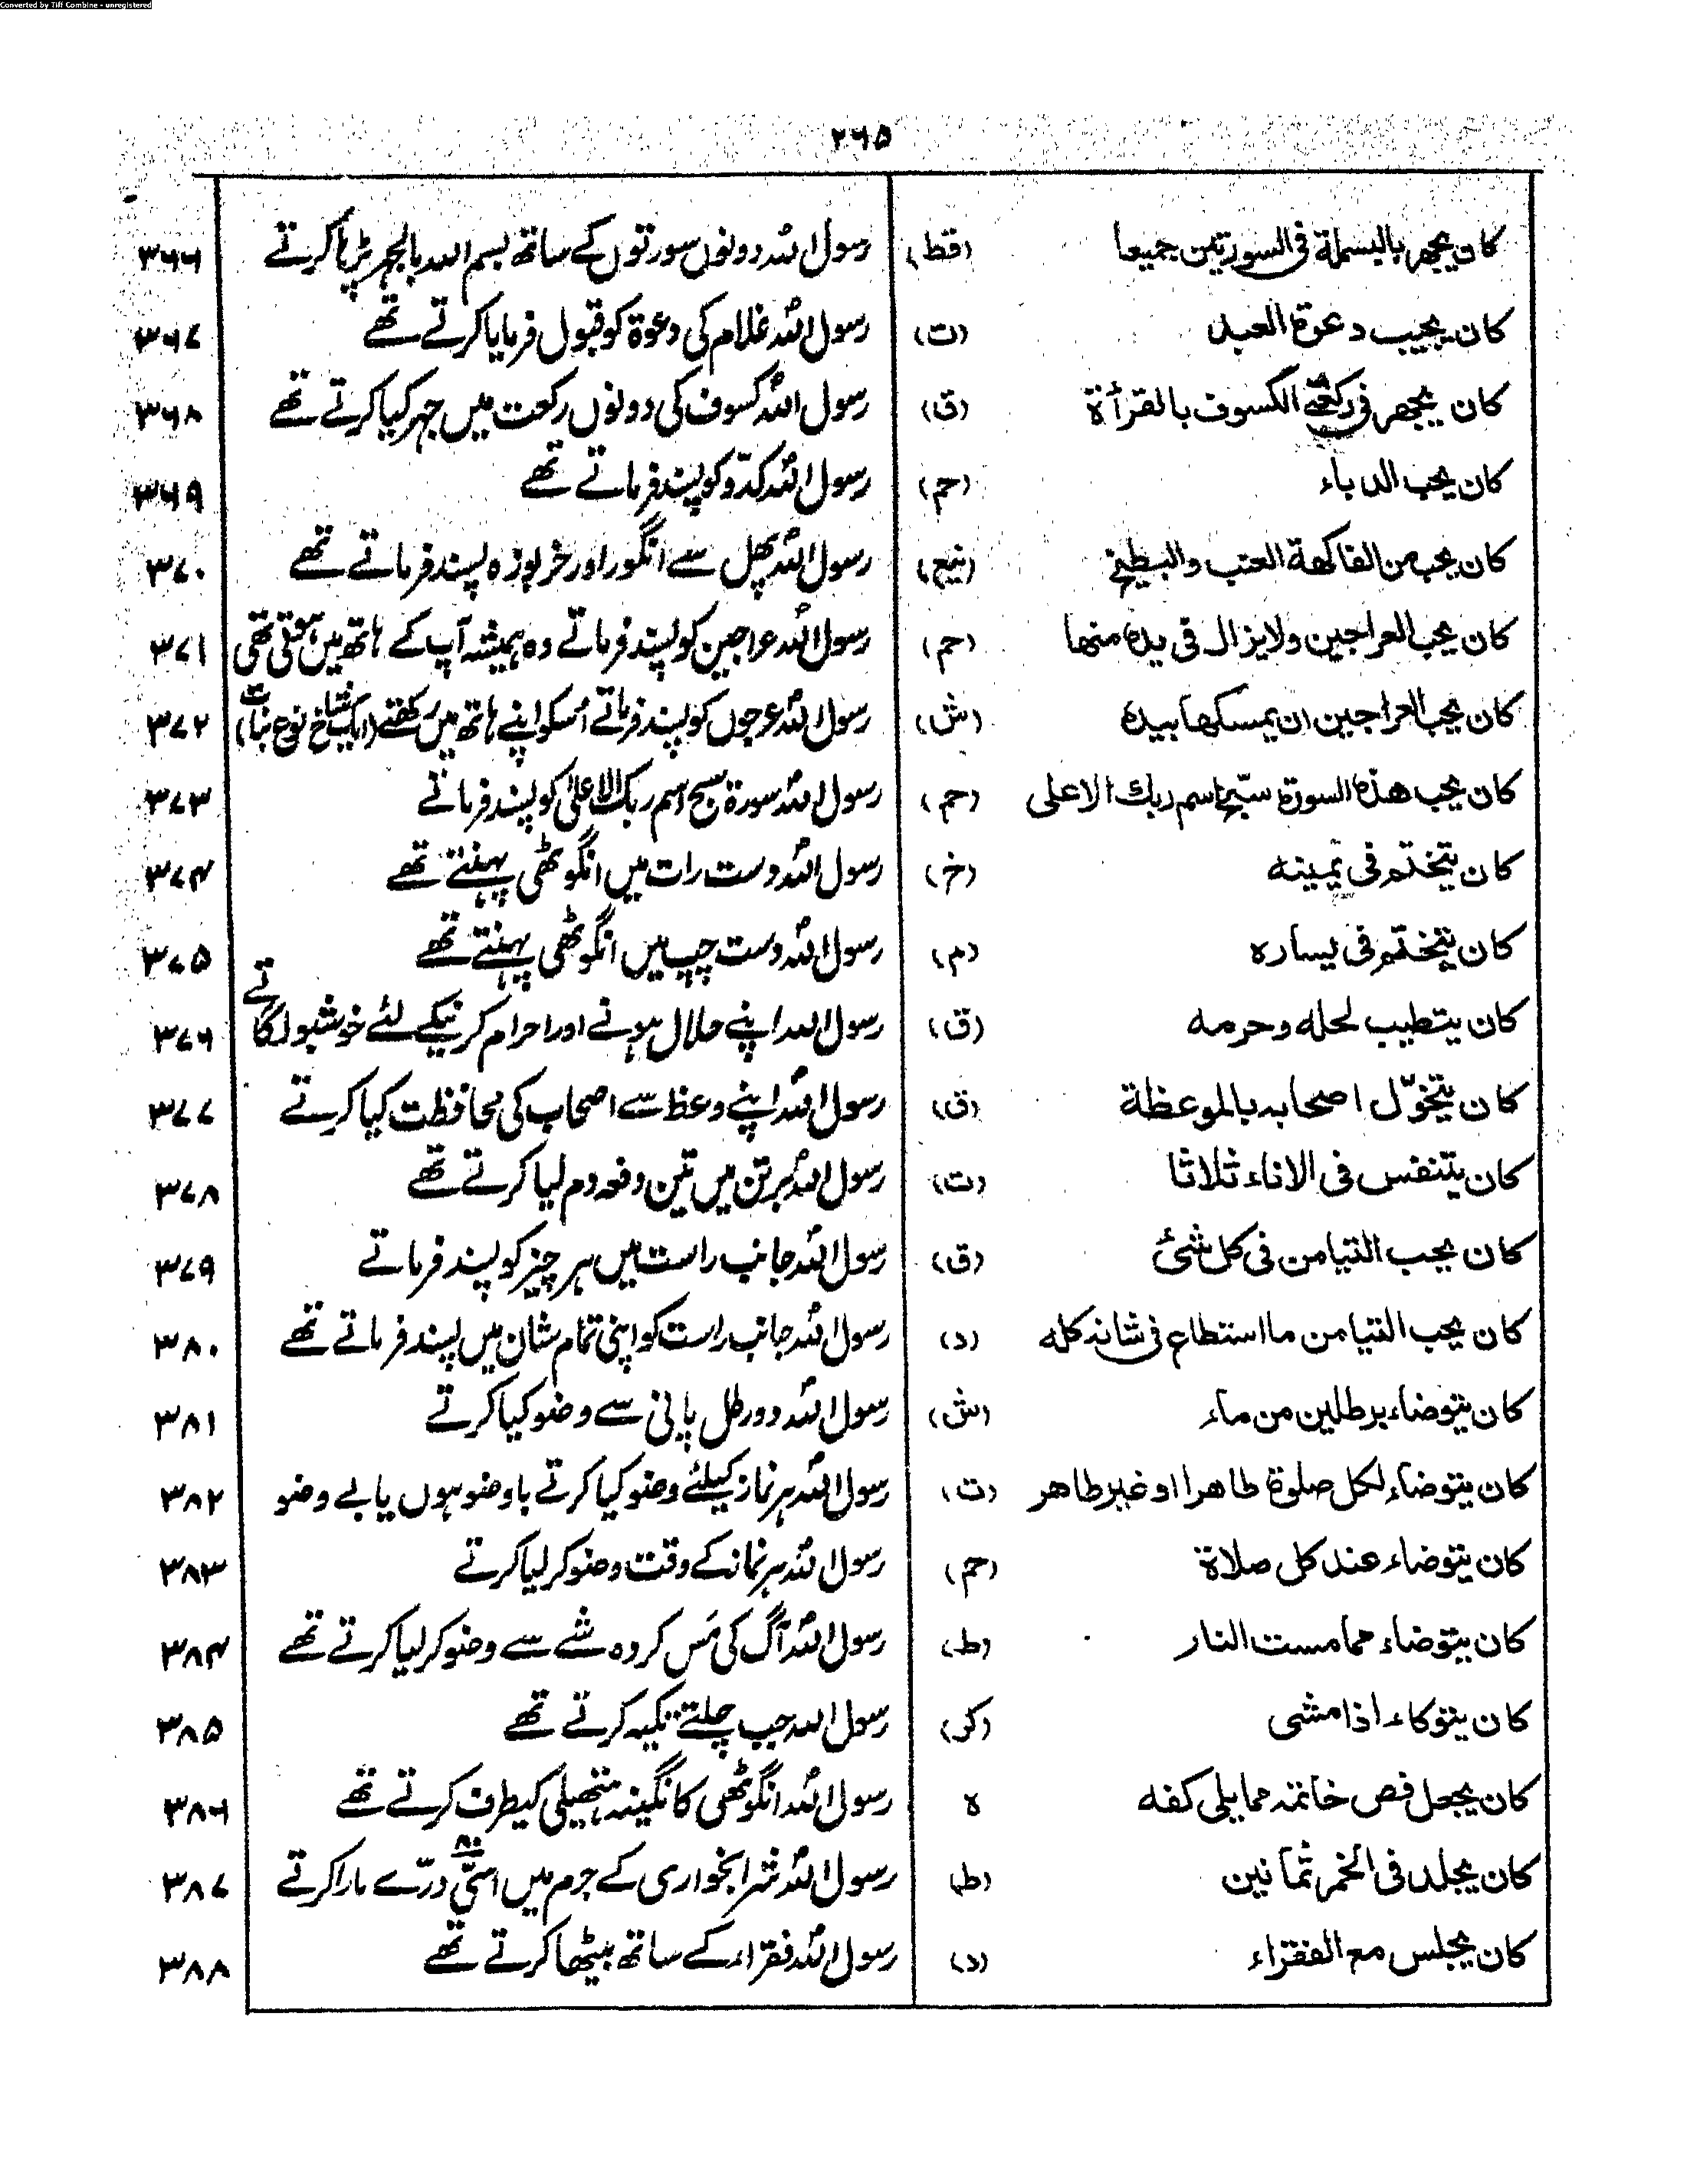 Converted by Tiff Combine - unregistered
۲۶۵
کان یجهر بالبسملة فی السورتین جمیعا (قط) رسول اللہ دونوں سورتوں کے ساتھ بسم اللہ بالجہر پڑہا کرتے ۳۶۶
کان یجیب دعوة العبد (ت) رسول اللہ غلام کی دعوۃ کو قبول فرمایا کرتے تھے ۳۶۷
کان یجهر فی رکعتی الکسوف بالقرأة (ق) رسول اللہ کسوف کی دونوں رکعت میں جہر کیا کرتے تھے ۳۶۸
کان یحب الدباء (حم) رسول اللہ کدّو کو پسند فرماتے تھے ۳۶۹
کان یحب من الفاکهة العنب والبطیخ رسول اللہ پھل سے انگور اور خربوزہ پسند فرماتے تھے ۳۷۰
کان یحب العراجین ولایزال فی یده منها (حم) رسول اللہ عراجین کو پسند فرماتے وہ ہمیشہ آپ کے ہاتھ میں ہوتی تھی ۳۷۱
کان یحب العراجین ان یمسکها بیده (ش) رسول اللہ عرجوں کو پسند فرماتے اُسکو اپنے ہاتھ میں رکھتے (ایک شاخ نوع نبات) ۳۷۲
کان یحب هذه السورة سبّح اسم ربك الاعلی (حم) رسول اللہ سورۃ سبح اسم ربک الاعلیٰ کو پسند فرماتے ۳۷۳
کان یتختم فی یمینه (خ) رسول اللہ دست رات میں انگوٹھی پہنتے تھے ۳۷۴
کان یتختم فی یساره (م) رسول اللہ دست چپ میں انگوٹھی پہنتے تھے ۳۷۵
کان یتطیب لحله وحرمه (ق) رسول اللہ اپنے حلال ہونے اور احرام کرنیکے لئے خوشبو لگاتے ۳۷۶
کان یتخوّل اصحابه بالموعظة (ق) رسول اللہ اپنے وعظ سے اصحاب کی محافظت کیا کرتے ۳۷۷
کان یتنفس فی الاناء ثلاثا (ت) رسول اللہ برتن میں تین دفعہ دم لیا کرتے تھے ۳۷۸
کان یحب التیامن فی کل شئ (ق) رسول اللہ جانب راست میں ہر چیز کو پسند فرماتے ۳۷۹
کان یحب التیامن ما استطاع فی شانه کله (د) رسول اللہ جانب راست کو اپنی تمام شان میں پسند فرماتے تھے ۳۸۰
کان یتوضاء برطلین من ماء (ش) رسول اللہ دو رطل پانی سے وضو کیا کرتے ۳۸۱
کان یتوضاء لکل صلوة طاهرا او غیر طاهر (ت) رسول اللہ ہر نماز کیلئے وضو کیا کرتے باوضو ہوں یا بے وضو ۳۸۲
کان یتوضاء عند کل صلاة (حم) رسول اللہ ہر نماز کے وقت وضو کر لیا کرتے ۳۸۳
کان یتوضاء مما مست النار (ط) رسول اللہ آگ کی مَس کردہ شے سے وضو کر لیا کرتے تھے ۳۸۴
کان یتوکاء اذا مشی (کر) رسول اللہ جب چلتے تکیہ کرتے تھے ۳۸۵
کان یجعل فص خاتمه مما یلی کفه ہ رسول اللہ انگوٹھی کا نگینہ ہتھیلی کیطرف کرتے تھے ۳۸۶
کان یجلد فی الخمر ثمانین (ط) رسول اللہ شرابخواری کے جرم میں اسّی ۸۰ درّے مارا کرتے ۳۸۷
کان یجلس مع الفقراء (د) رسول اللہ فقراء کے ساتھ بیٹھا کرتے تھے ۳۸۸